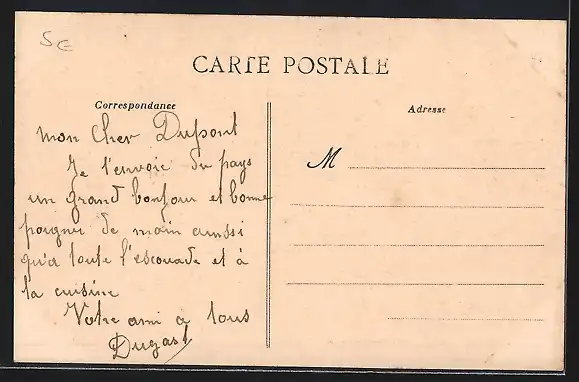 SE
CARTE POSTALE
Correspondance
Mon Cher Dupont
Je t'envoie du pays
un grand bonjour et bonne
poigner de main aussi
qu'a toute l'escouade et à
la cuisine
Votre ami à tous
Dugast
Adresse
M